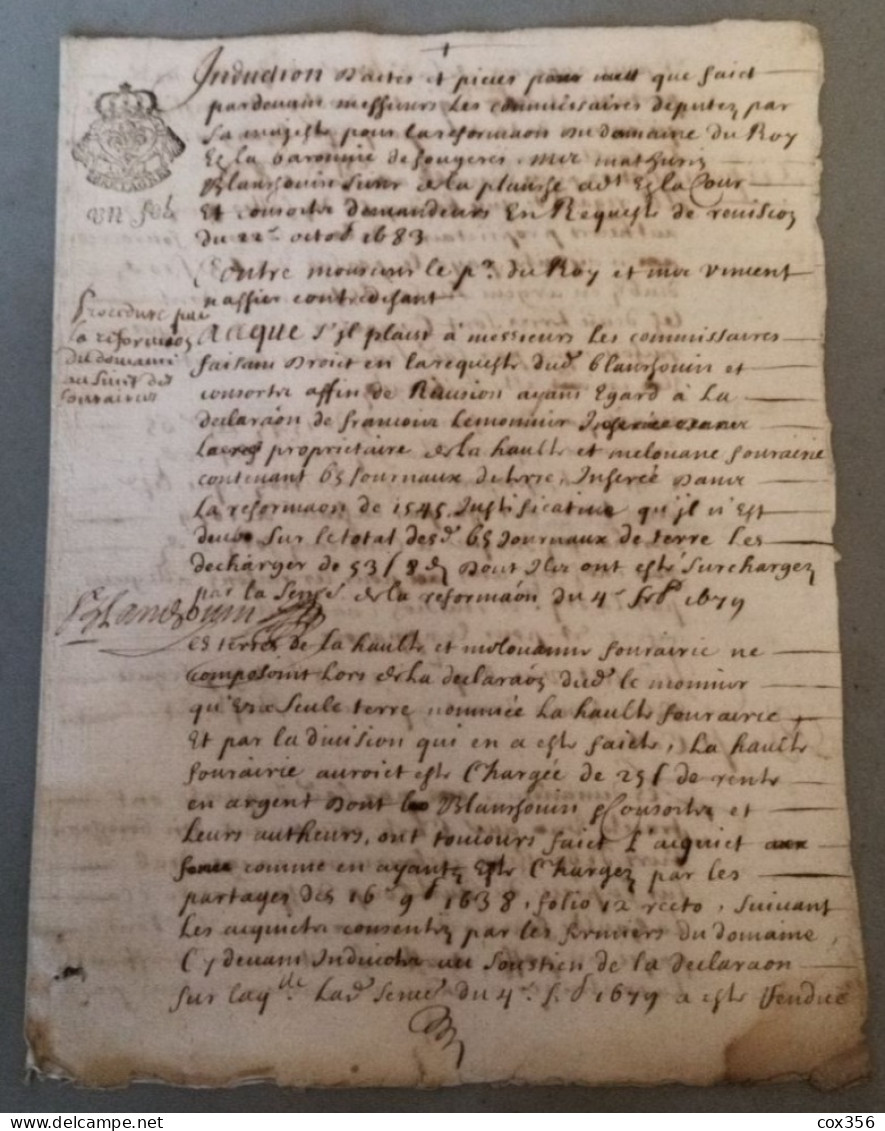 Induction d'actes et pieces pour
que faict
pardevant messieurs les commissaires deputez par
Sa majesté pour la reformaon du domaine du Roy
En la baronnie de fougeres, Mre mathurin
Blanchouin Sieur de la planche adt En la Cour
Et consorts demandeurs En Requeste de revision
du 22e octob 1683
Contre monsieur le pr. du Roy et mre vincent
contredisant
BRETAGNE
VN sol
Procedure pour
la reformaon
du domaine
au sujet des
fourairies
A ce QUE s'il plaist à messieurs les commissaires
faisant droict en la requeste dud. blanchouin et
consorts affin de Revision ayant Egard à La
declaraon de francois Lemonnier
proprietaire de la haulte et melouane fourairie
contenant 65 Journaux de terre, Inserée dans
La reformaon de 1545, Justificative qu'jl n'Est
deub sur le total desd. 65 Journaux de terre Les
decharger de 53 s 8 d dont Ilz ont esté surchargez
par la Sence de la reformaon du 4e 1679
Blanchouin
es terres de la haulte et melouanne fourairie ne
composoint lors de La declaraon dud. le monnier
qu'Une Seule terre nommée La haulte fourairie
Et par la division qui en a esté faicte, La haulte
fourairie auroict esté Chargée de 25 s de rente
en argent dont le Blanchouin & Consorts et
Leurs autheurs, ont toujours faict L'aquict aux
comme en ayant Esté Chargez par les
partages des 16e 9b 1638, folio 12 recto, suivant
Les acquicts consentis par les fermiers du domaine,
Cy devant Induicts au soustien de la declaraon
sur laqlle Lad. Sence du 4e 1679 a esté Rendue
cox356